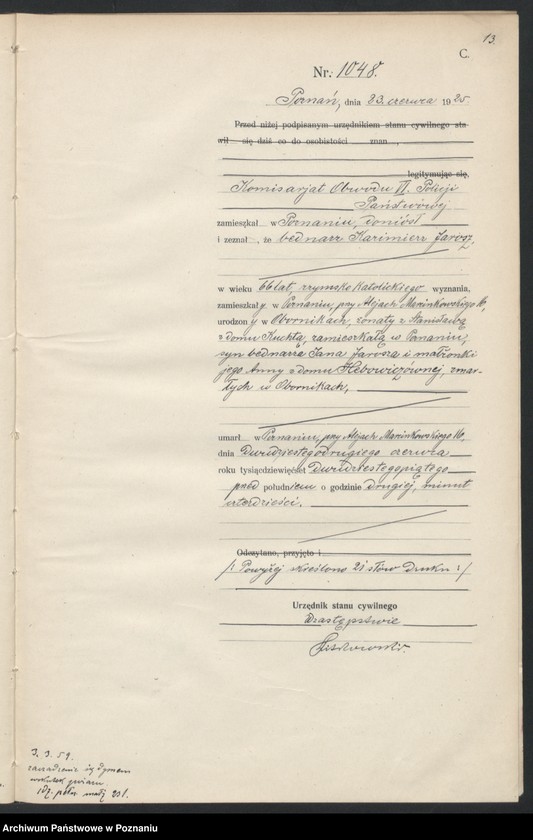 13.
C.
Nr. 1048.
Poznań, dnia 23. czerwca 1925.
Przed niżej podpisanym urzędnikiem stanu cywilnego sta-
wił się dziś co do osobistości znan
legitymując się,
Komisarjat Obwodu VI. Policji
Państwowej
zamieszkał w Poznaniu, doniósł
i zeznał, że bednarz Kazimierz Jarosz,
w wieku 66 lat, rzymsko katolickiego wyznania,
zamieszkały w Poznaniu, przy Alejach Marcinkowskiego 16,
urodzony w Obornikach, żonaty z Stanisławą
z domu Kuchta, zamieszkałą w Poznaniu,
syn bednarza Jana Jarosza i małżonki
jego Anny z domu Hebowiczównej, zmar-
łych w Obornikach,
umarł w Poznaniu, przy Alejach Marcinkowskiego 16,
dnia Dwudziestegodrugiego czerwca
roku tysiącdziewięćset Dwudziestegopiątego
przed południem o godzinie drugiej, minut
czterdzieści.
Odczytano, przyjęto i
/: Powyżej skreślono 21 słów druku :/
Urzędnik stanu cywilnego
W zastępstwie
3. 3. 59.
Archiwum Państwowe w Poznaniu